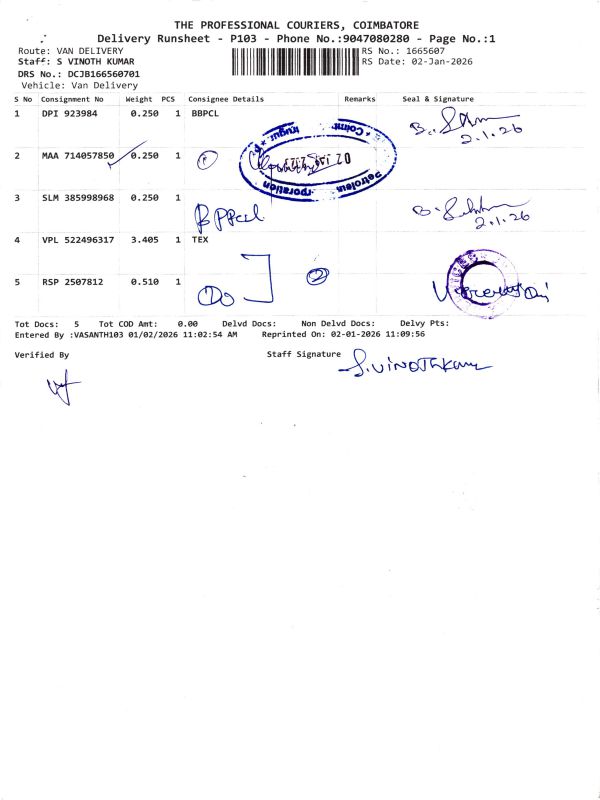 THE PROFESSIONAL COURIERS, COIMBATORE
Delivery Runsheet - P103 - Phone No.:9047080280 - Page No.:1
Route: VAN DELIVERY RS No.: 1665607
Staff: S VINOTH KUMAR RS Date: 02-Jan-2026
DRS No.: DCJB166560701
Vehicle: Van Delivery
S No Consignment No Weight PCS Consignee Details Remarks Seal & Signature
1 DPI 923984 0.250 1 BBPCL
2.1.26
2 MAA 714057850 0.250 1 1
02 JAN 2026
Petroleum
3 SLM 385998968 0.250 1
2.1.26
4 VPL 522496317 3.405 1 TEX
5 RSP 2507812 0.510 1 Do 2
Tot Docs: 5 Tot COD Amt: 0.00 Delvd Docs: Non Delvd Docs: Delvy Pts:
Entered By :VASANTH103 01/02/2026 11:02:54 AM Reprinted On: 02-01-2026 11:09:56
Verified By Staff Signature S.VINOTHKumar